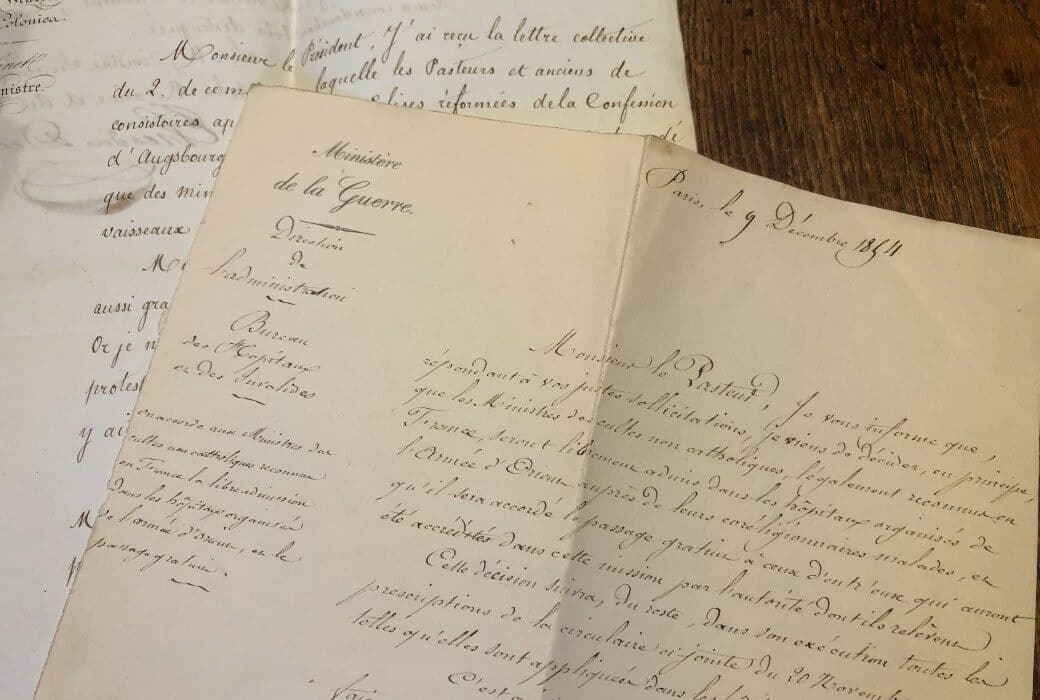 Colonies.
Monsieur le Président, J'ai reçu la lettre collective
du 2. de ce m laquelle les Pasteurs et anciens de
consistoires ap lises réformées de la Confession
d'Augsbourg
que des min
vaisseaux
aussi gra
Or je n
protest
y a
Ministère
de la Guerre.
Direction
de
l'administration
Bureau
des Hôpitaux
et des Invalides
on accorde aux Ministres des
cultes non catholiques reconnus
en France la libre admission
dans les hôpitaux organisés
de l'armée d'orient, et le
passage gratuit.
Paris, le 9 Décembre 1854
Monsieur le Pasteur, Je vous informe que,
répondant à vos justes sollicitations, je viens de décider, en principe,
que les Ministres des cultes non catholiques, légalement reconnus en
France, seront librement admis dans les hôpitaux organisés de
l'Armée d'Orient auprès de leurs coréligionnaires malades, et
qu'il sera accordé le passage gratuit à ceux d'entr'eux qui auront
été accrédités dans cette mission par l'autorité dont ils relèvent.
Cette décision suivra, du reste, dans son exécution toutes les
prescriptions de la circulaire ci-jointe du 20 Novembre
telles qu'elles sont appliquées dans les
C'est